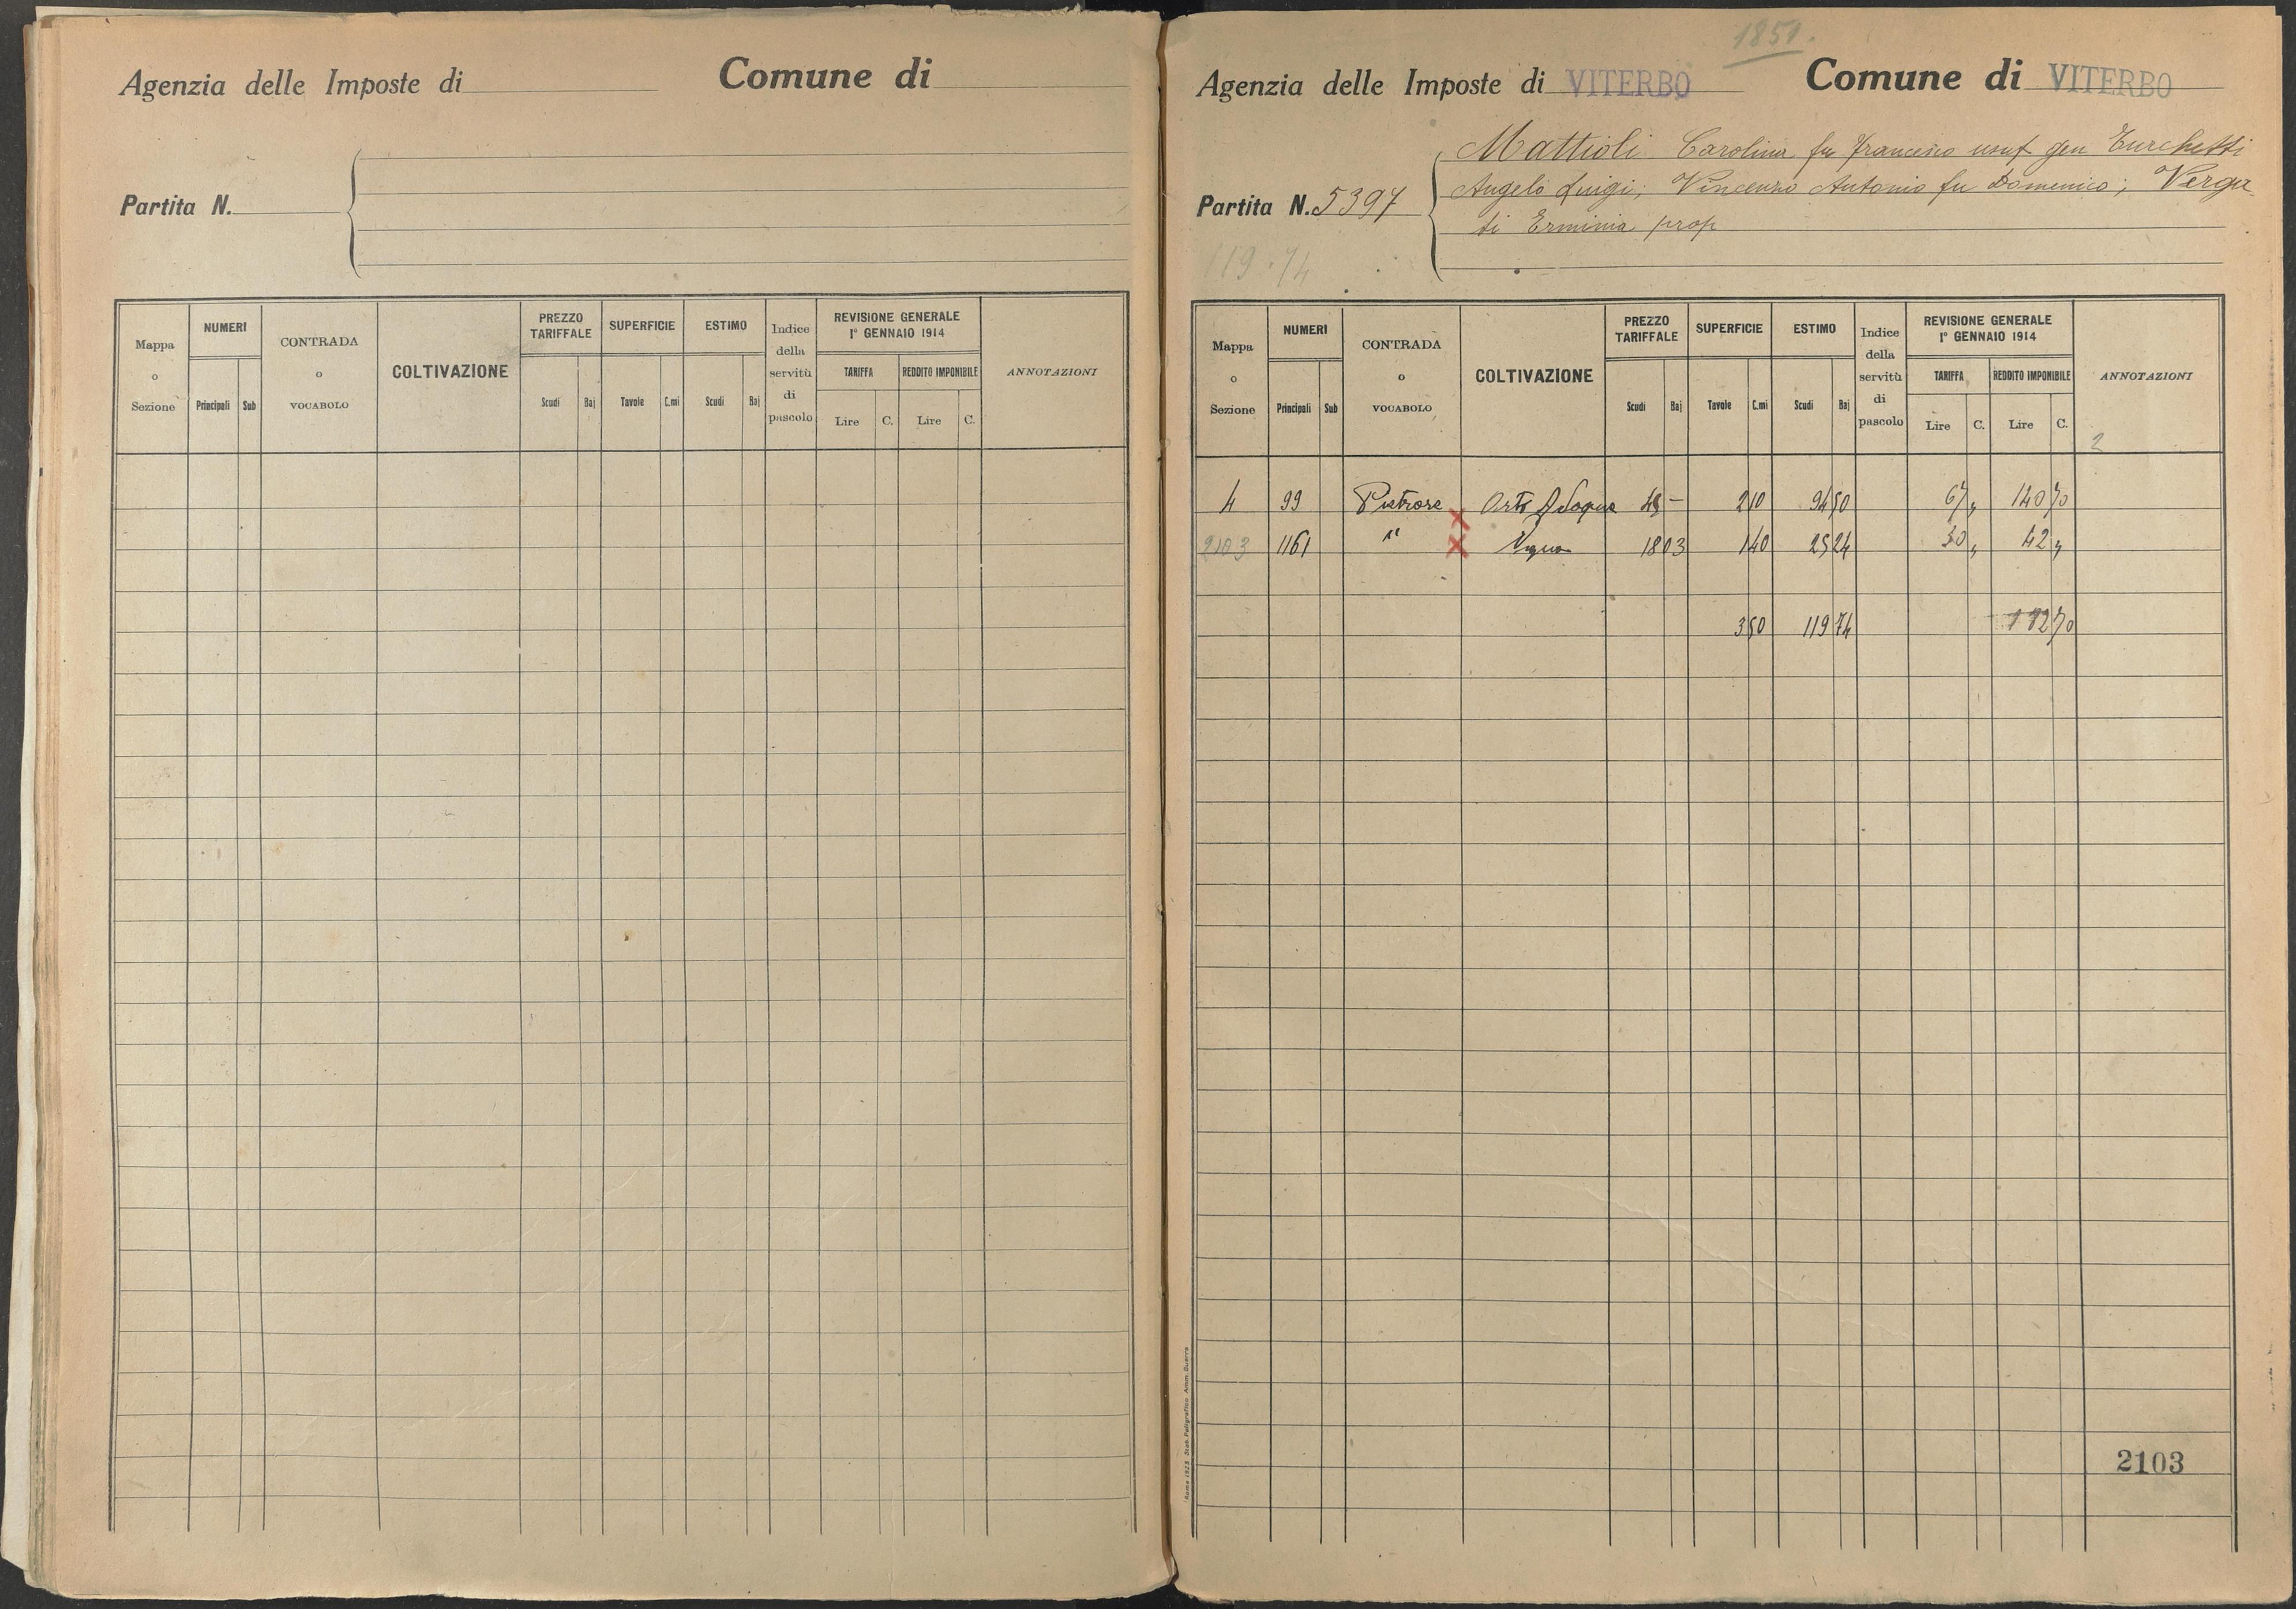 Agenzia delle Imposte di Comune di
Partita N.
Mappa o Sezione NUMERI Principali Sub CONTRADA o VOCABOLO COLTIVAZIONE PREZZO TARIFFALE Scudi Baj SUPERFICIE Tavole C.mi ESTIMO Scudi Baj Indice della servitù di pascolo REVISIONE GENERALE 1° GENNAIO 1914 TARIFFA Lire C. REDDITO IMPONIBILE Lire C. ANNOTAZIONI
1851.
Agenzia delle Imposte di VITERBO Comune di VITERBO
Mattioli Carolina fu Francesco usuf gen Turchetti
Angelo Luigi; Vincenzo Antonio fu Domenico; Verga
Partita N. 5397
ti Erminia prop
119.74
Mappa o Sezione NUMERI Principali Sub CONTRADA o VOCABOLO COLTIVAZIONE PREZZO TARIFFALE Scudi Baj SUPERFICIE Tavole C.mi ESTIMO Scudi Baj Indice della servitù di pascolo REVISIONE GENERALE 1° GENNAIO 1914 TARIFFA Lire C. REDDITO IMPONIBILE Lire C. ANNOTAZIONI
2
4 99 Pietrare Orto 45 – 2 10 94 50 67 " 140 70
2103 1161 " Vigna 18 03 1 40 25 24 30 " 42 "
3 50 119 74 182 70
2103
Roma 1923 Stab. Poligrafico Amm. Guerra